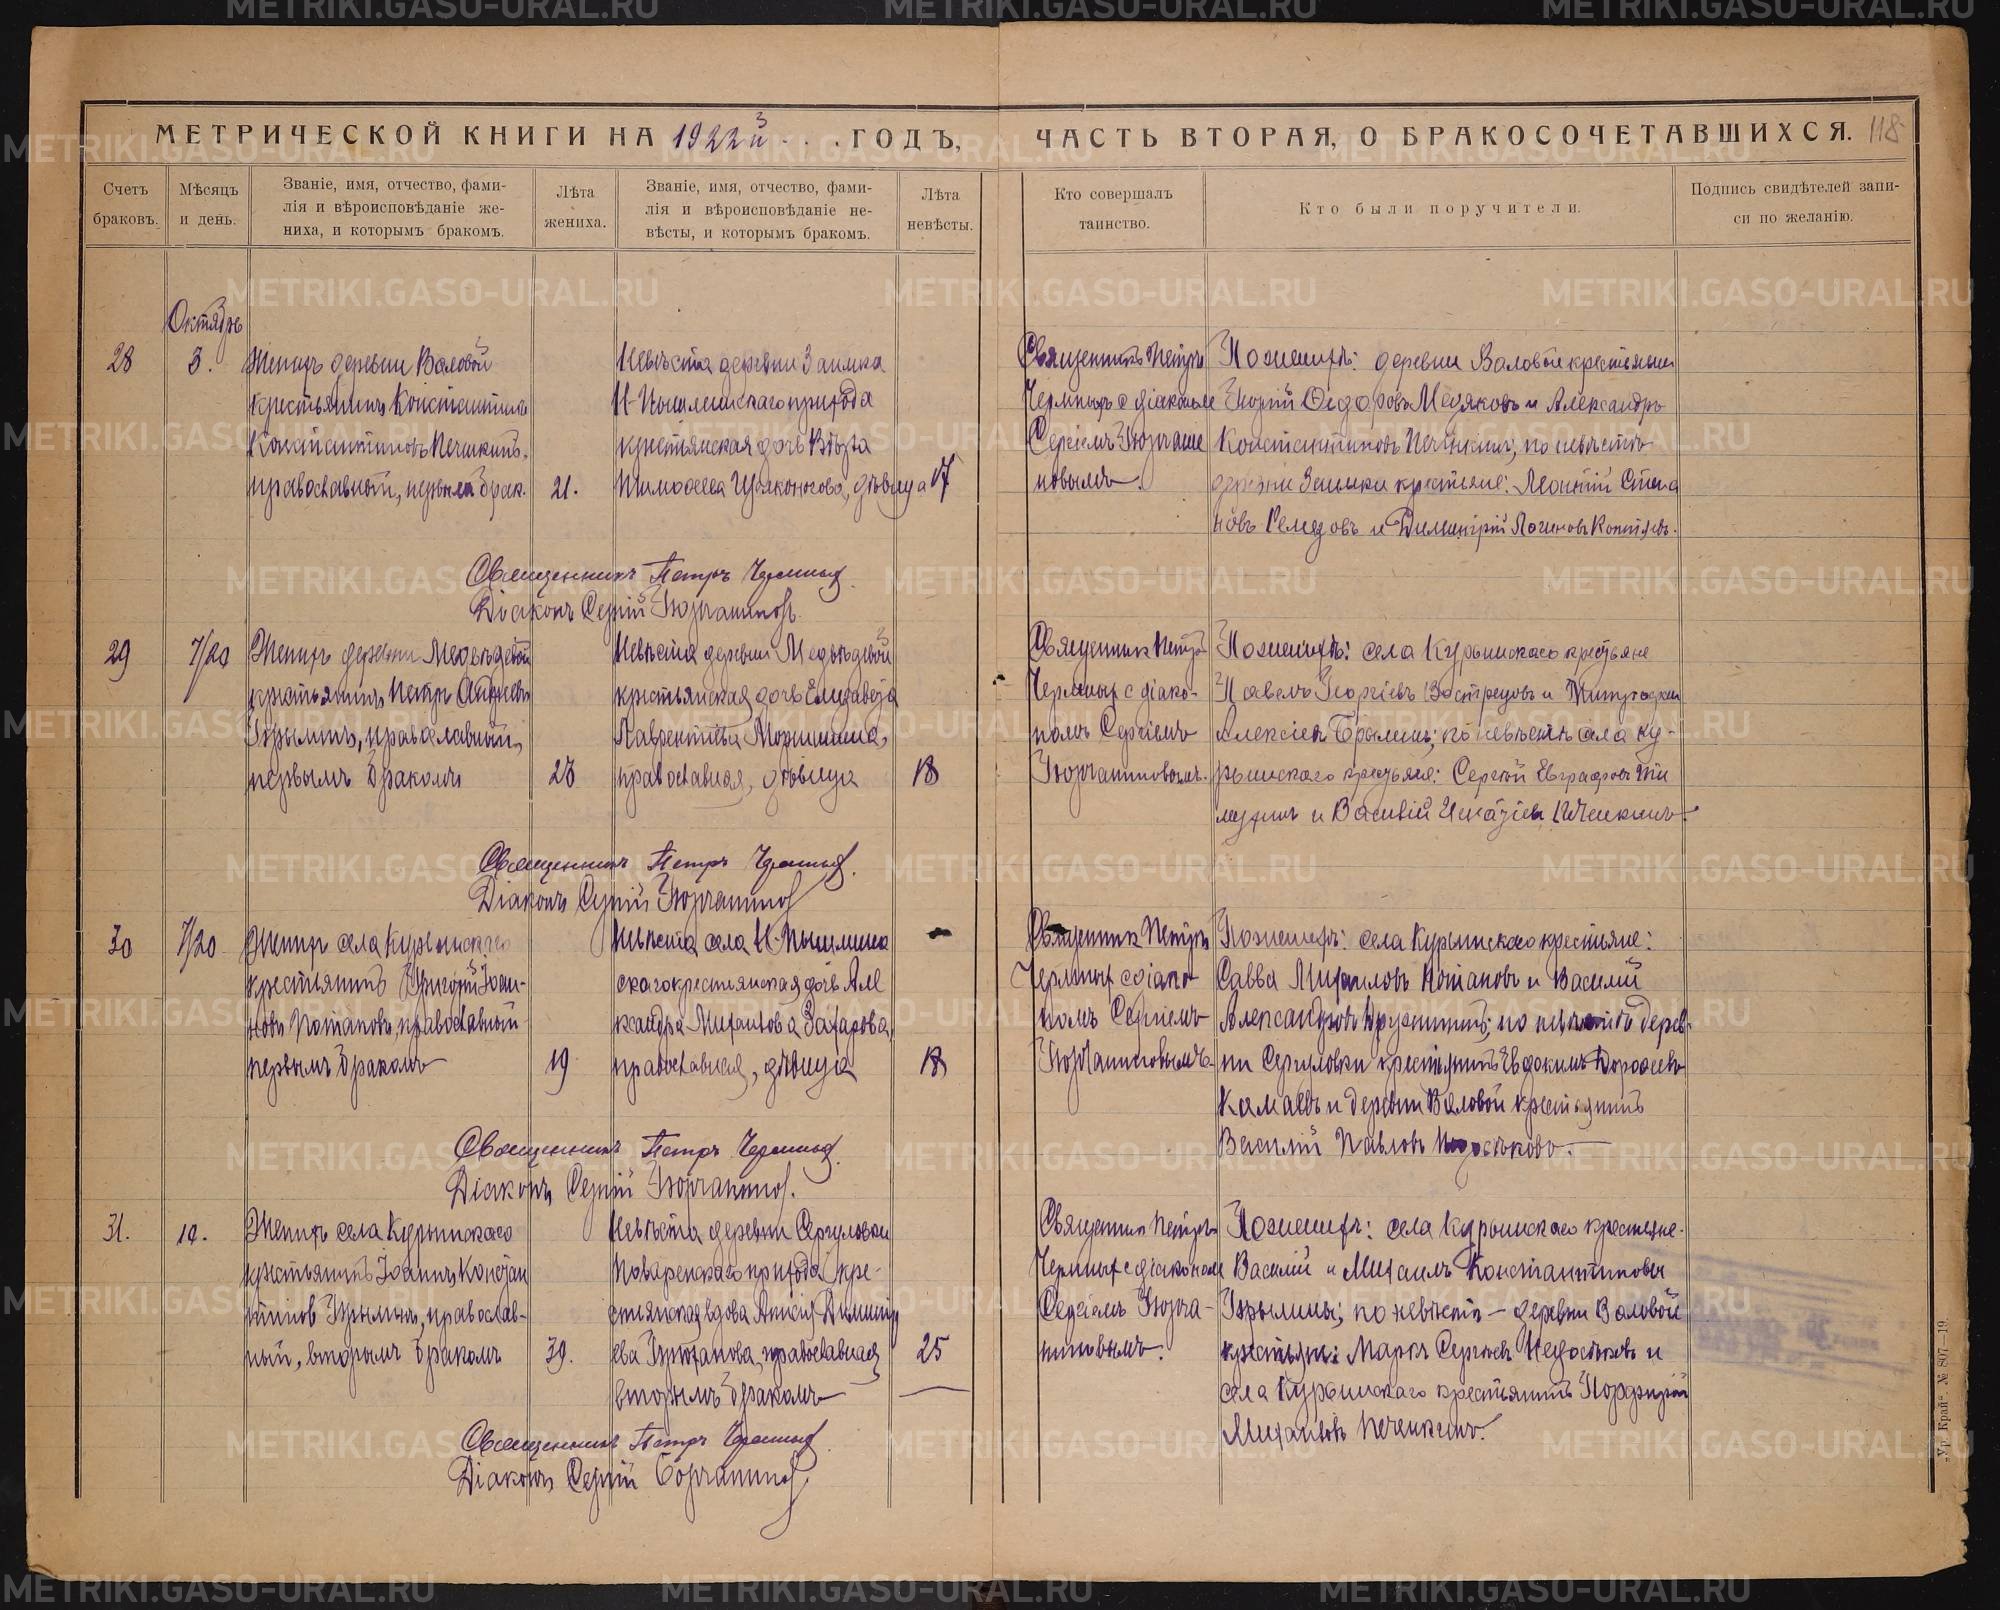 МЕТРИЧЕСКОЙ КНИГИ НА 1922й ГОДЪ,
ЧАСТЬ ВТОРАЯ, О БРАКОСОЧЕТАВШИХСЯ. 118
Счетъ браковъ.
Мѣсяцъ и день.
Званіе, имя, отчество, фами-
лія и вѣроисповѣданіе же-
ниха, и которымъ бракомъ.
Лѣта жениха.
Званіе, имя, отчество, фами-
лія и вѣроисповѣданіе не-
вѣсты, и которымъ бракомъ.
Лѣта невѣсты.
Кто совершалъ
таинство.
Кто были поручители.
Подпись свидѣтелей запи-
си по желанію.
Октябрь
28
3.
Женихъ деревни Валовой
крестьянинъ Константинъ
Константиновъ Печинкинъ,
православный, первымъ брак.
21.
Невѣста деревни Заимка
Н-Пышминскаго прихода
крестьянская дочь Вѣра
Тимофеева, дѣвица
17
Священникъ Петръ
Черныхъ с діакономъ
Сергіемъ
Поженихѣ: деревни Валовой крестьяне
Ѳедоровъ и Александръ
Константиновъ Печинкинъ, по невѣстѣ
деревни Заимки крестьяне: Леонтій Степа
новъ и Димитрій Логиновъ Коптяевъ.
Священникъ Петръ Черныхъ.
Діаконъ Сергій
29
7/20
Женихъ деревни Медвѣдевой
крестьянинъ Петръ Андреевъ
православный,
первымъ бракомъ
23
Невѣста деревни Медвѣдевой
крестьянская дочь Елизавета
Лаврентіева
православная, дѣвица
18
Священникъ Петръ
Черныхъ с діако-
номъ Сергіемъ
Поженихѣ: села Курьинскаго крестьяне
Павелъ Георгіевъ Вострецовъ и
Алексіевъ; по невѣстѣ села Ку-
рьинскаго крестьяне: Сергѣй Евграфовъ
и Василій
Священникъ Петръ Черныхъ.
Діаконъ Сергій
30
7/20
Женихъ села Курьинскаго
крестьянинъ Григорій Іоан-
новъ Потаповъ, православный
первымъ бракомъ
19
Невѣста села Н-Пышмин
скаго крестьянская дочь Але
ксандра Михаилова Захарова,
православная, дѣвица
18
Священник Петръ
Черныхъ с діако
номъ Сергіемъ
Поженихѣ: села Курьинскаго крестьяне:
Савва Михаиловъ Потаповъ и Василій
Александровъ; по невѣстѣ дерев-
ни Сергуловки крестьянинъ Евдокимъ Дорофеевъ
Камаевъ и деревни Валовой крестьянинъ
Василій Павловъ
Священникъ Петръ Черныхъ.
Діаконъ Сергій
31.
10.
Женихъ села Курьинскаго
крестьянинъ Іоаннъ Констан
тиновъ, православ-
ный, вторымъ бракомъ
39.
Невѣста деревни Сергуловки
прихода кре-
стьянская вдова Анисія Димитрі
ева, православная
вторымъ бракомъ
25
Священникъ Петръ
Черныхъ с діакономъ
Сергіемъ
Поженихѣ: села Курьинскаго крестьяне
Василій и Михаилъ Константиновы
по невѣстѣ - деревни Валовой
крестьян: Маркъ Сергіевъ и
села Курьинскаго крестьянинъ Порфирій
Михаиловъ Печинкинъ.
Священникъ Петръ Черныхъ.
Діаконъ Сергій
„Ур. Край“. № 807—19
METRIKI.GASO-URAL.RU